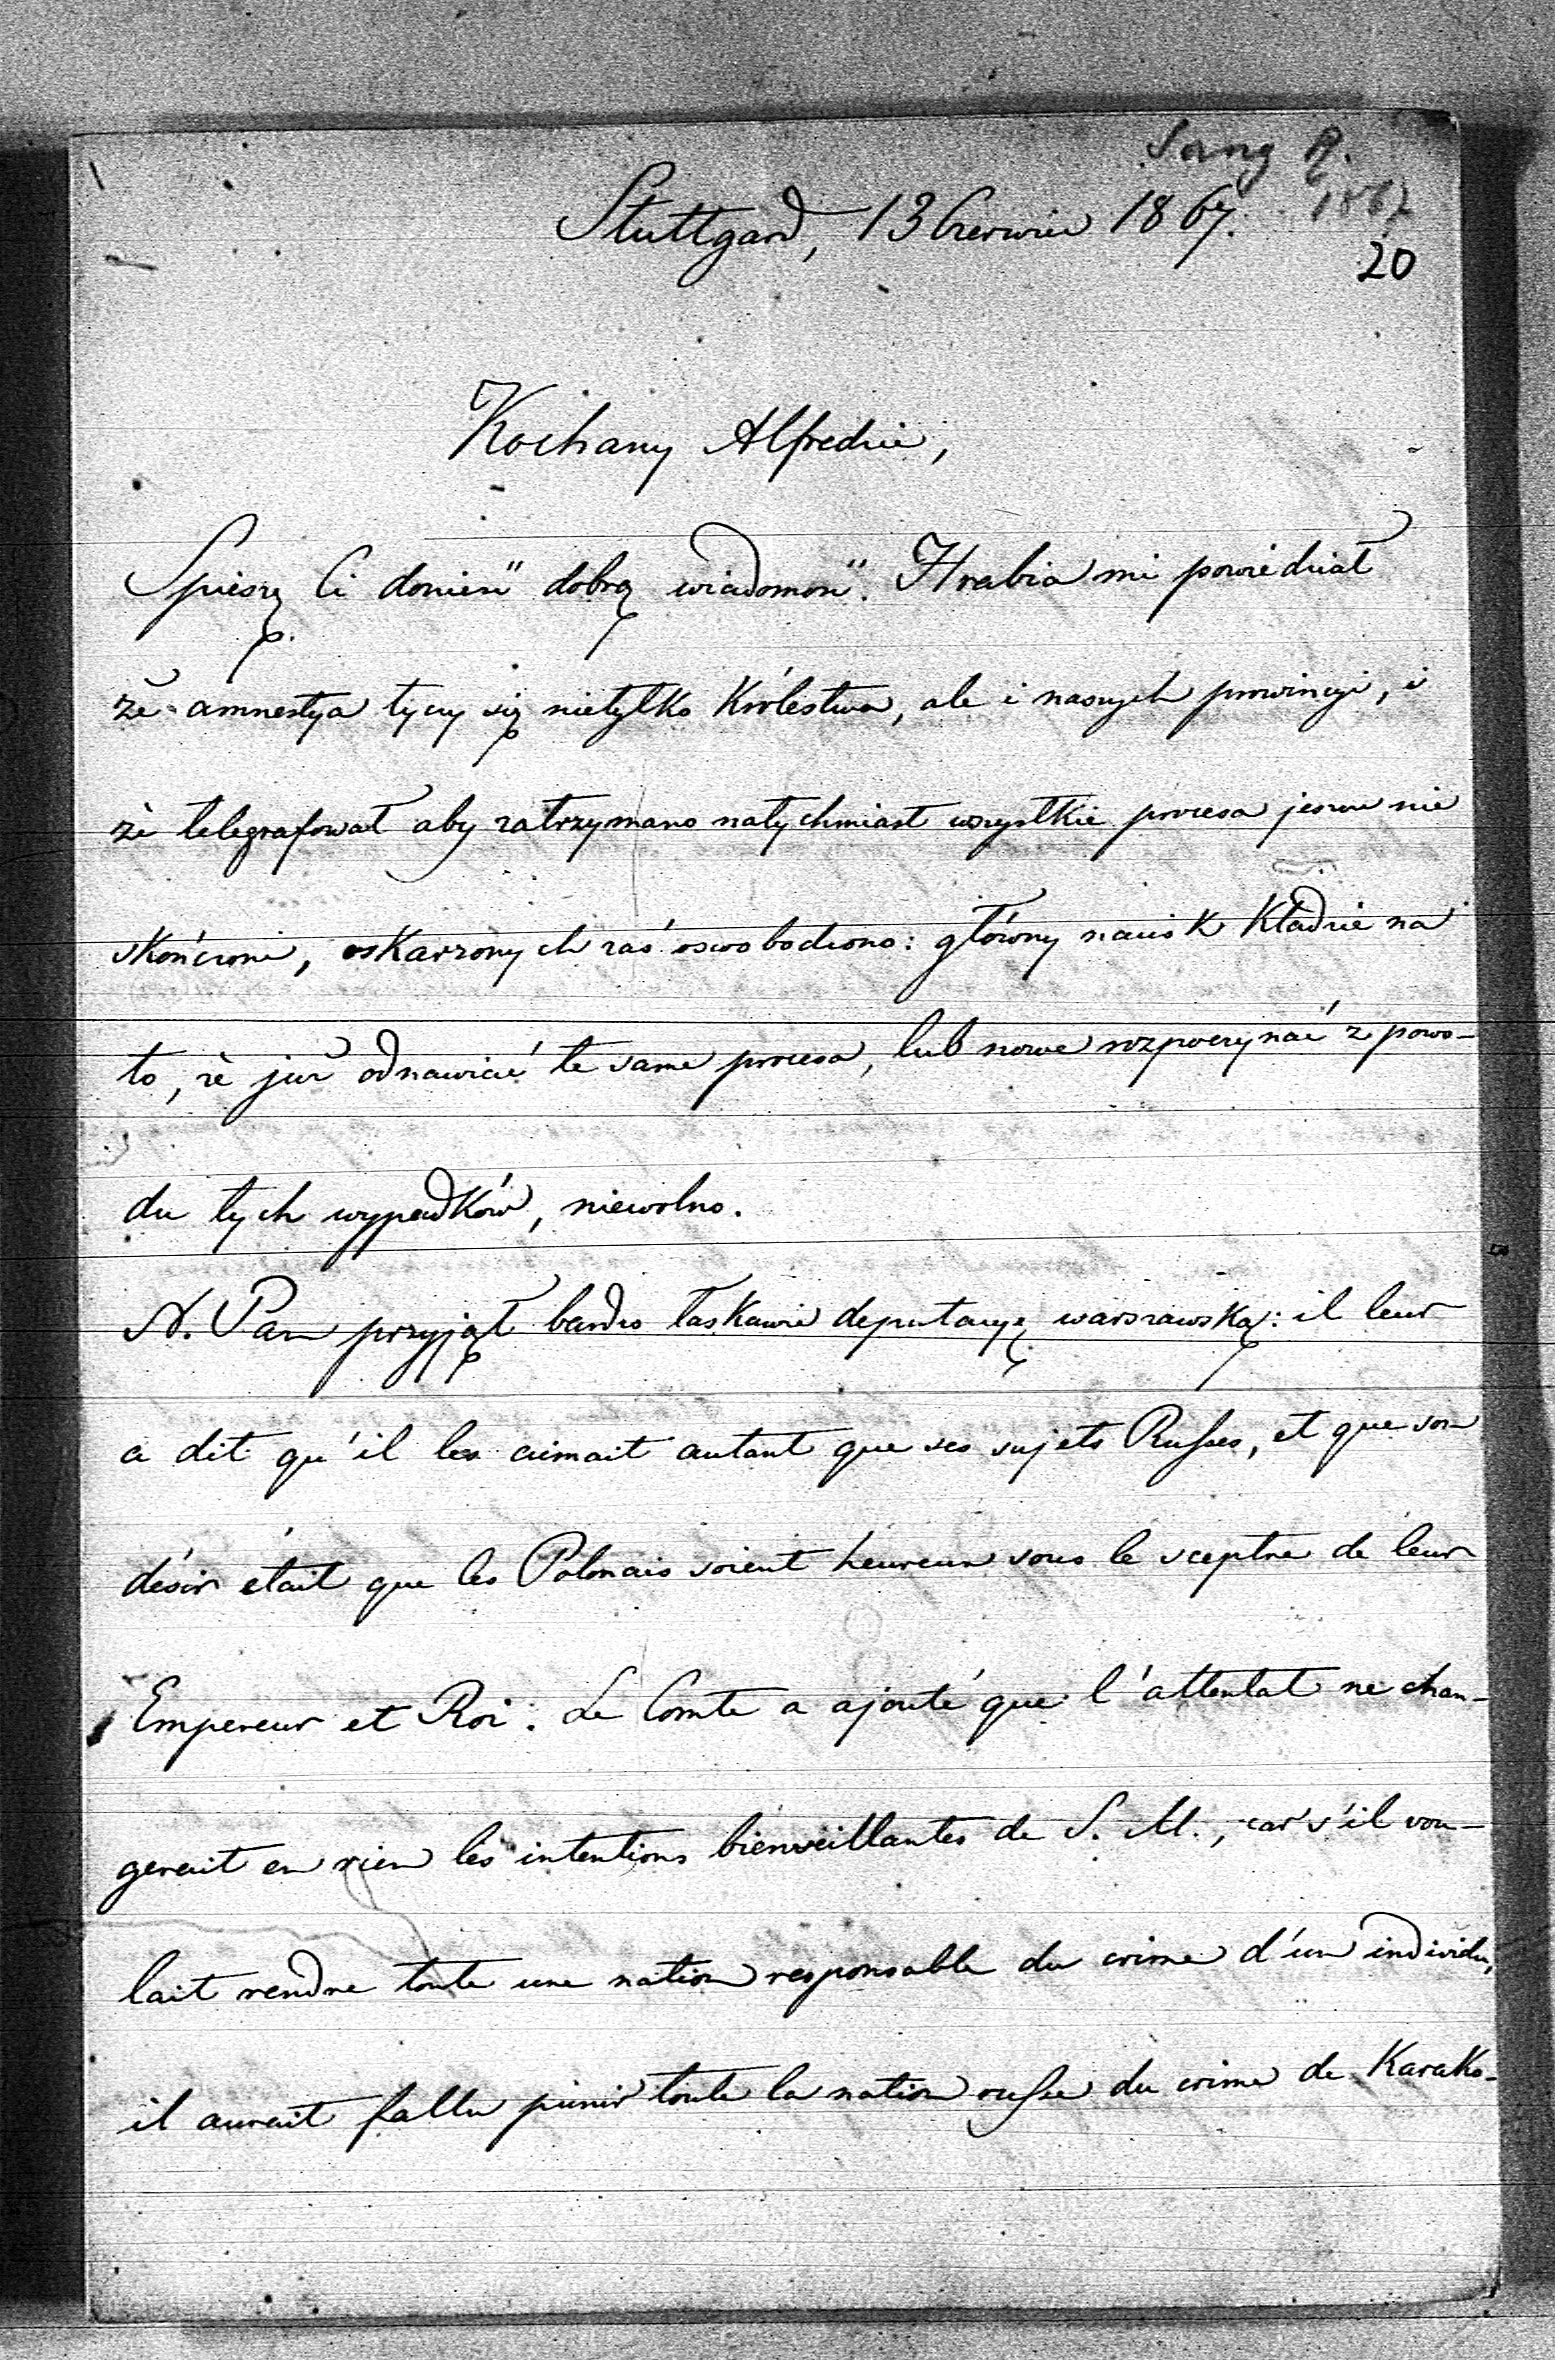 1867
20
Stuttgard, 13 Czerwca 1867.
Kochany Alfredzie,
Spieszę Ci donieść dobrą wiadomość. Hrabia mi powiedział
że amnestya tyczy się nietylko Królestwa, ale i naszych prowincyi, i
że telegrafował aby zatrzymano natychmiast wszystkie procesa jeszcze nie
skończone, oskarzonych zaś oswobodzono: główny nacisk kładzie na
to, że już odnawiać te same procesa, lub nowe rozpoczynać z powo-
du tych wypadków, niewolno.
N. Pan przyjął bardzo łaskawie deputacyę warszawską: il leur
a dit qu'il les aimait autant que ses sujets Russes, et que son
désir était que les Polonais soient heureux sous le sceptre de leur
Empereur et Roi. Le Comte a ajouté que l'attentat ne chan-
gerait en rien les intentions bienveillantes de S. M., car s'il vou-
lait rendre toute une nation responsable du crime d'un individu,
il aurait fallu punir toute la nation russe du crime de Karako-